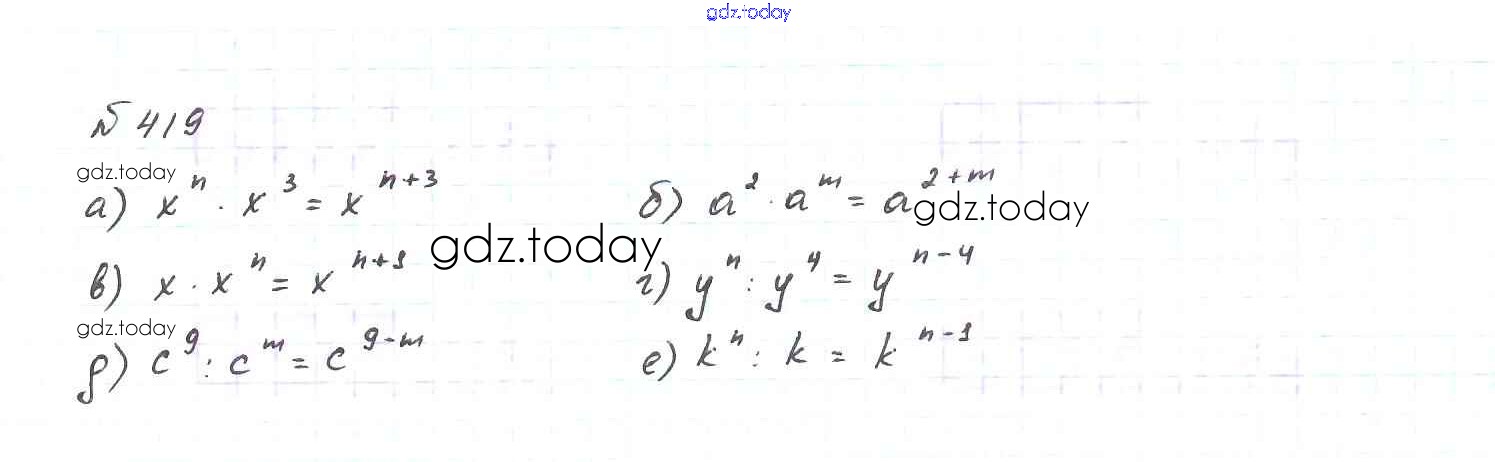 gdz.today
№ 419
gdz.today
а) xⁿ · x³ = xⁿ⁺³ б) a² · aᵐ = a²⁺ᵐ
gdz.today
gdz.today
в) x · xⁿ = xⁿ⁺¹ г) yⁿ : y⁴ = yⁿ⁻⁴
gdz.today
д) c⁹ : cᵐ = c⁹⁻ᵐ е) kⁿ : k = kⁿ⁻¹